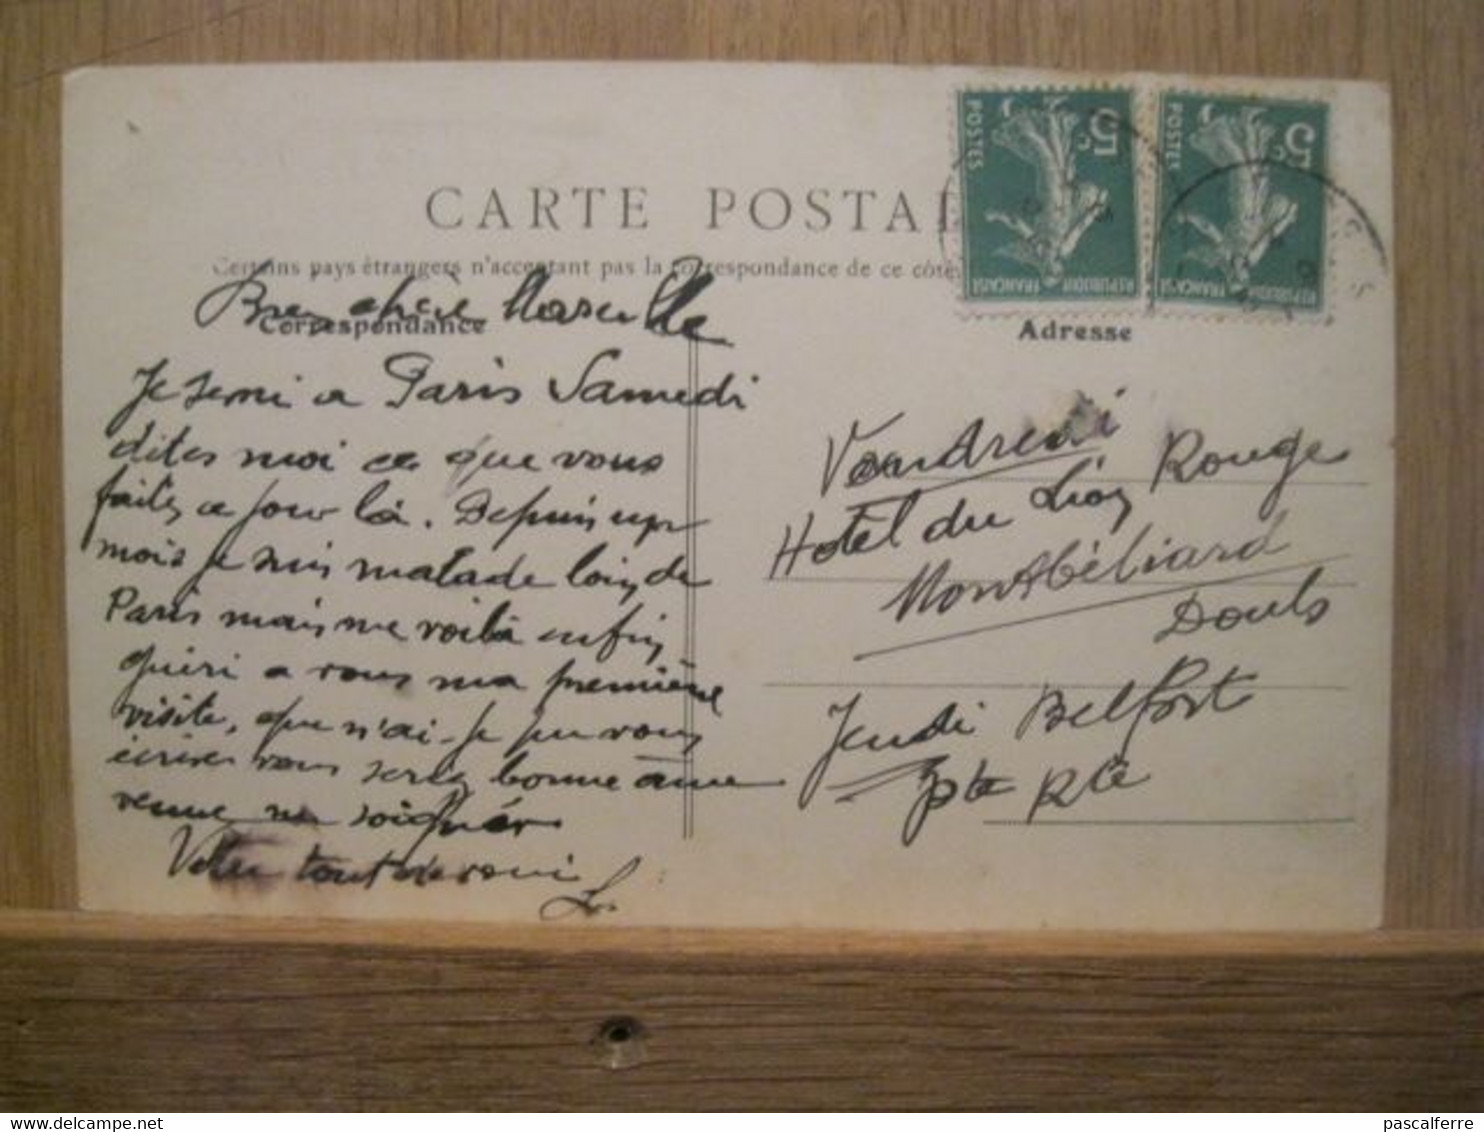 CARTE POSTAL
Certains pays étrangers n'acceptent pas la correspondance de ce côté
Correspondance
Adresse
5c
POSTES
REPUBLIQUE FRANÇAISE
5c
POSTES
REPUBLIQUE FRANÇAISE
Bien chère
Je serai a Paris Samedi
dites moi ce que vous
faites ce jour là. Depuis un
mois je suis malade loin de
Paris mais me voilà enfin
guéri a vous ma première
visite, que n'ai-je pu vous
écrire vous serez bonne âme
venue me soigner
Votre tout dévoué
Vendredi
Hotel du Lion Rouge
Montbéliard
Doubs
Jeudi Belfort
Pte Rte
pascalferre